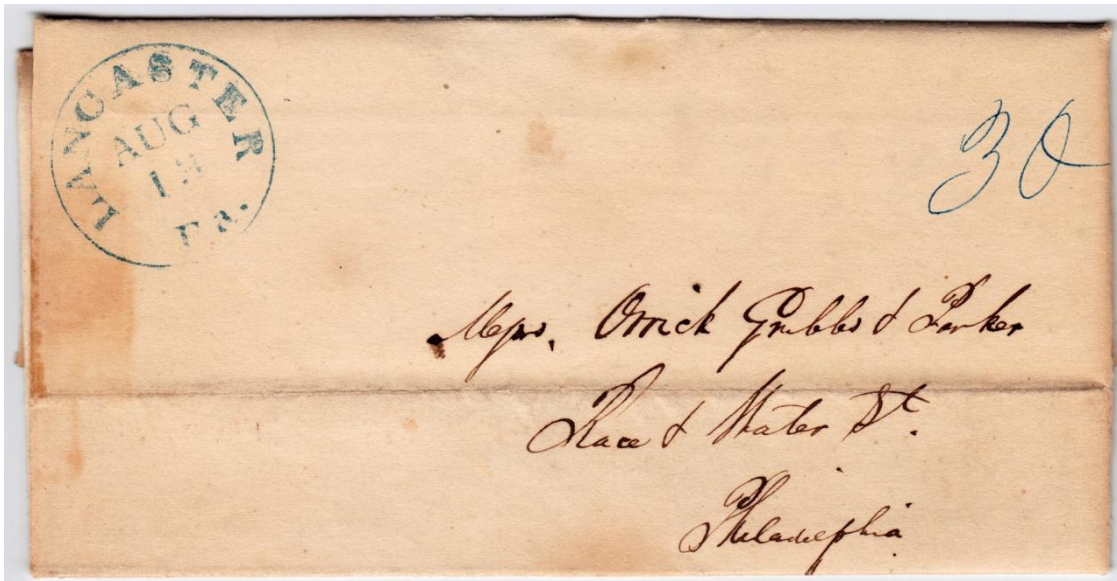 LANCASTER
AUG
Pa.
30
Messrs. Orrick Grubbs & Parker
Race & Water St.
Philadelphia